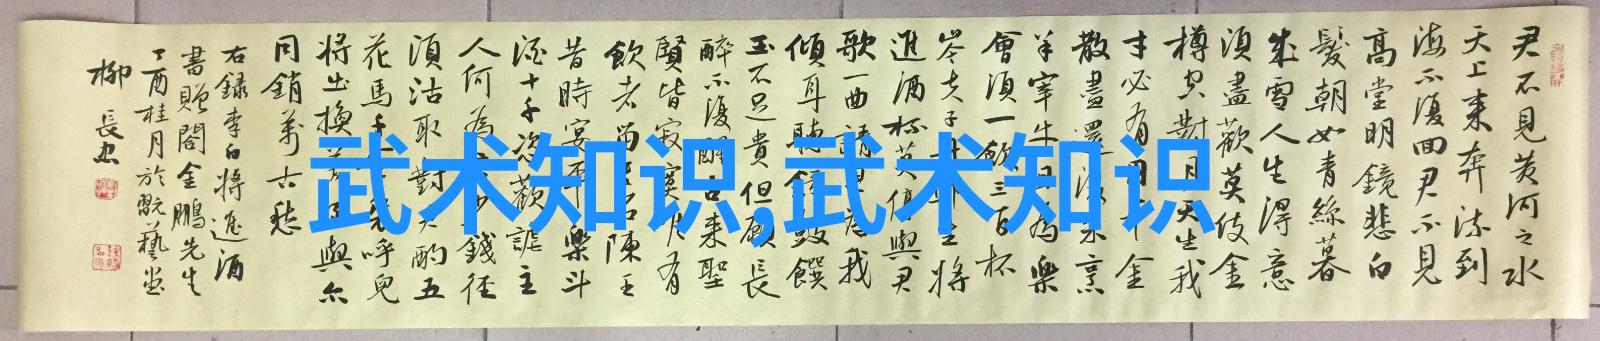 君不見黄河之水
天上來奔流到
海不復回君不見
高堂明鏡悲白
髮朝如青絲暮
成雪人生得意
須盡歡莫使金
樽空對月天生我
才必有用千金
散盡還復來烹
羊宰牛且為樂
會須一飲三百杯
岑夫子丹丘生將
進酒杯莫停與君
歌一曲請君為我
傾耳聽鐘鼓饌
玉不足貴但願長
醉不復醒古來聖
賢皆寂寞惟有
飲者留其名陳王
昔時宴平樂斗
酒十千恣歡謔主
人何為言少錢徑
須沽取對君酌五
花馬千金裘呼兒
將出換美酒與尔
同銷萬古愁
右録李白將進酒
書贈閻金鵬先生
丁酉桂月於翫藝堂
柳長忠
武术知识,武术知识